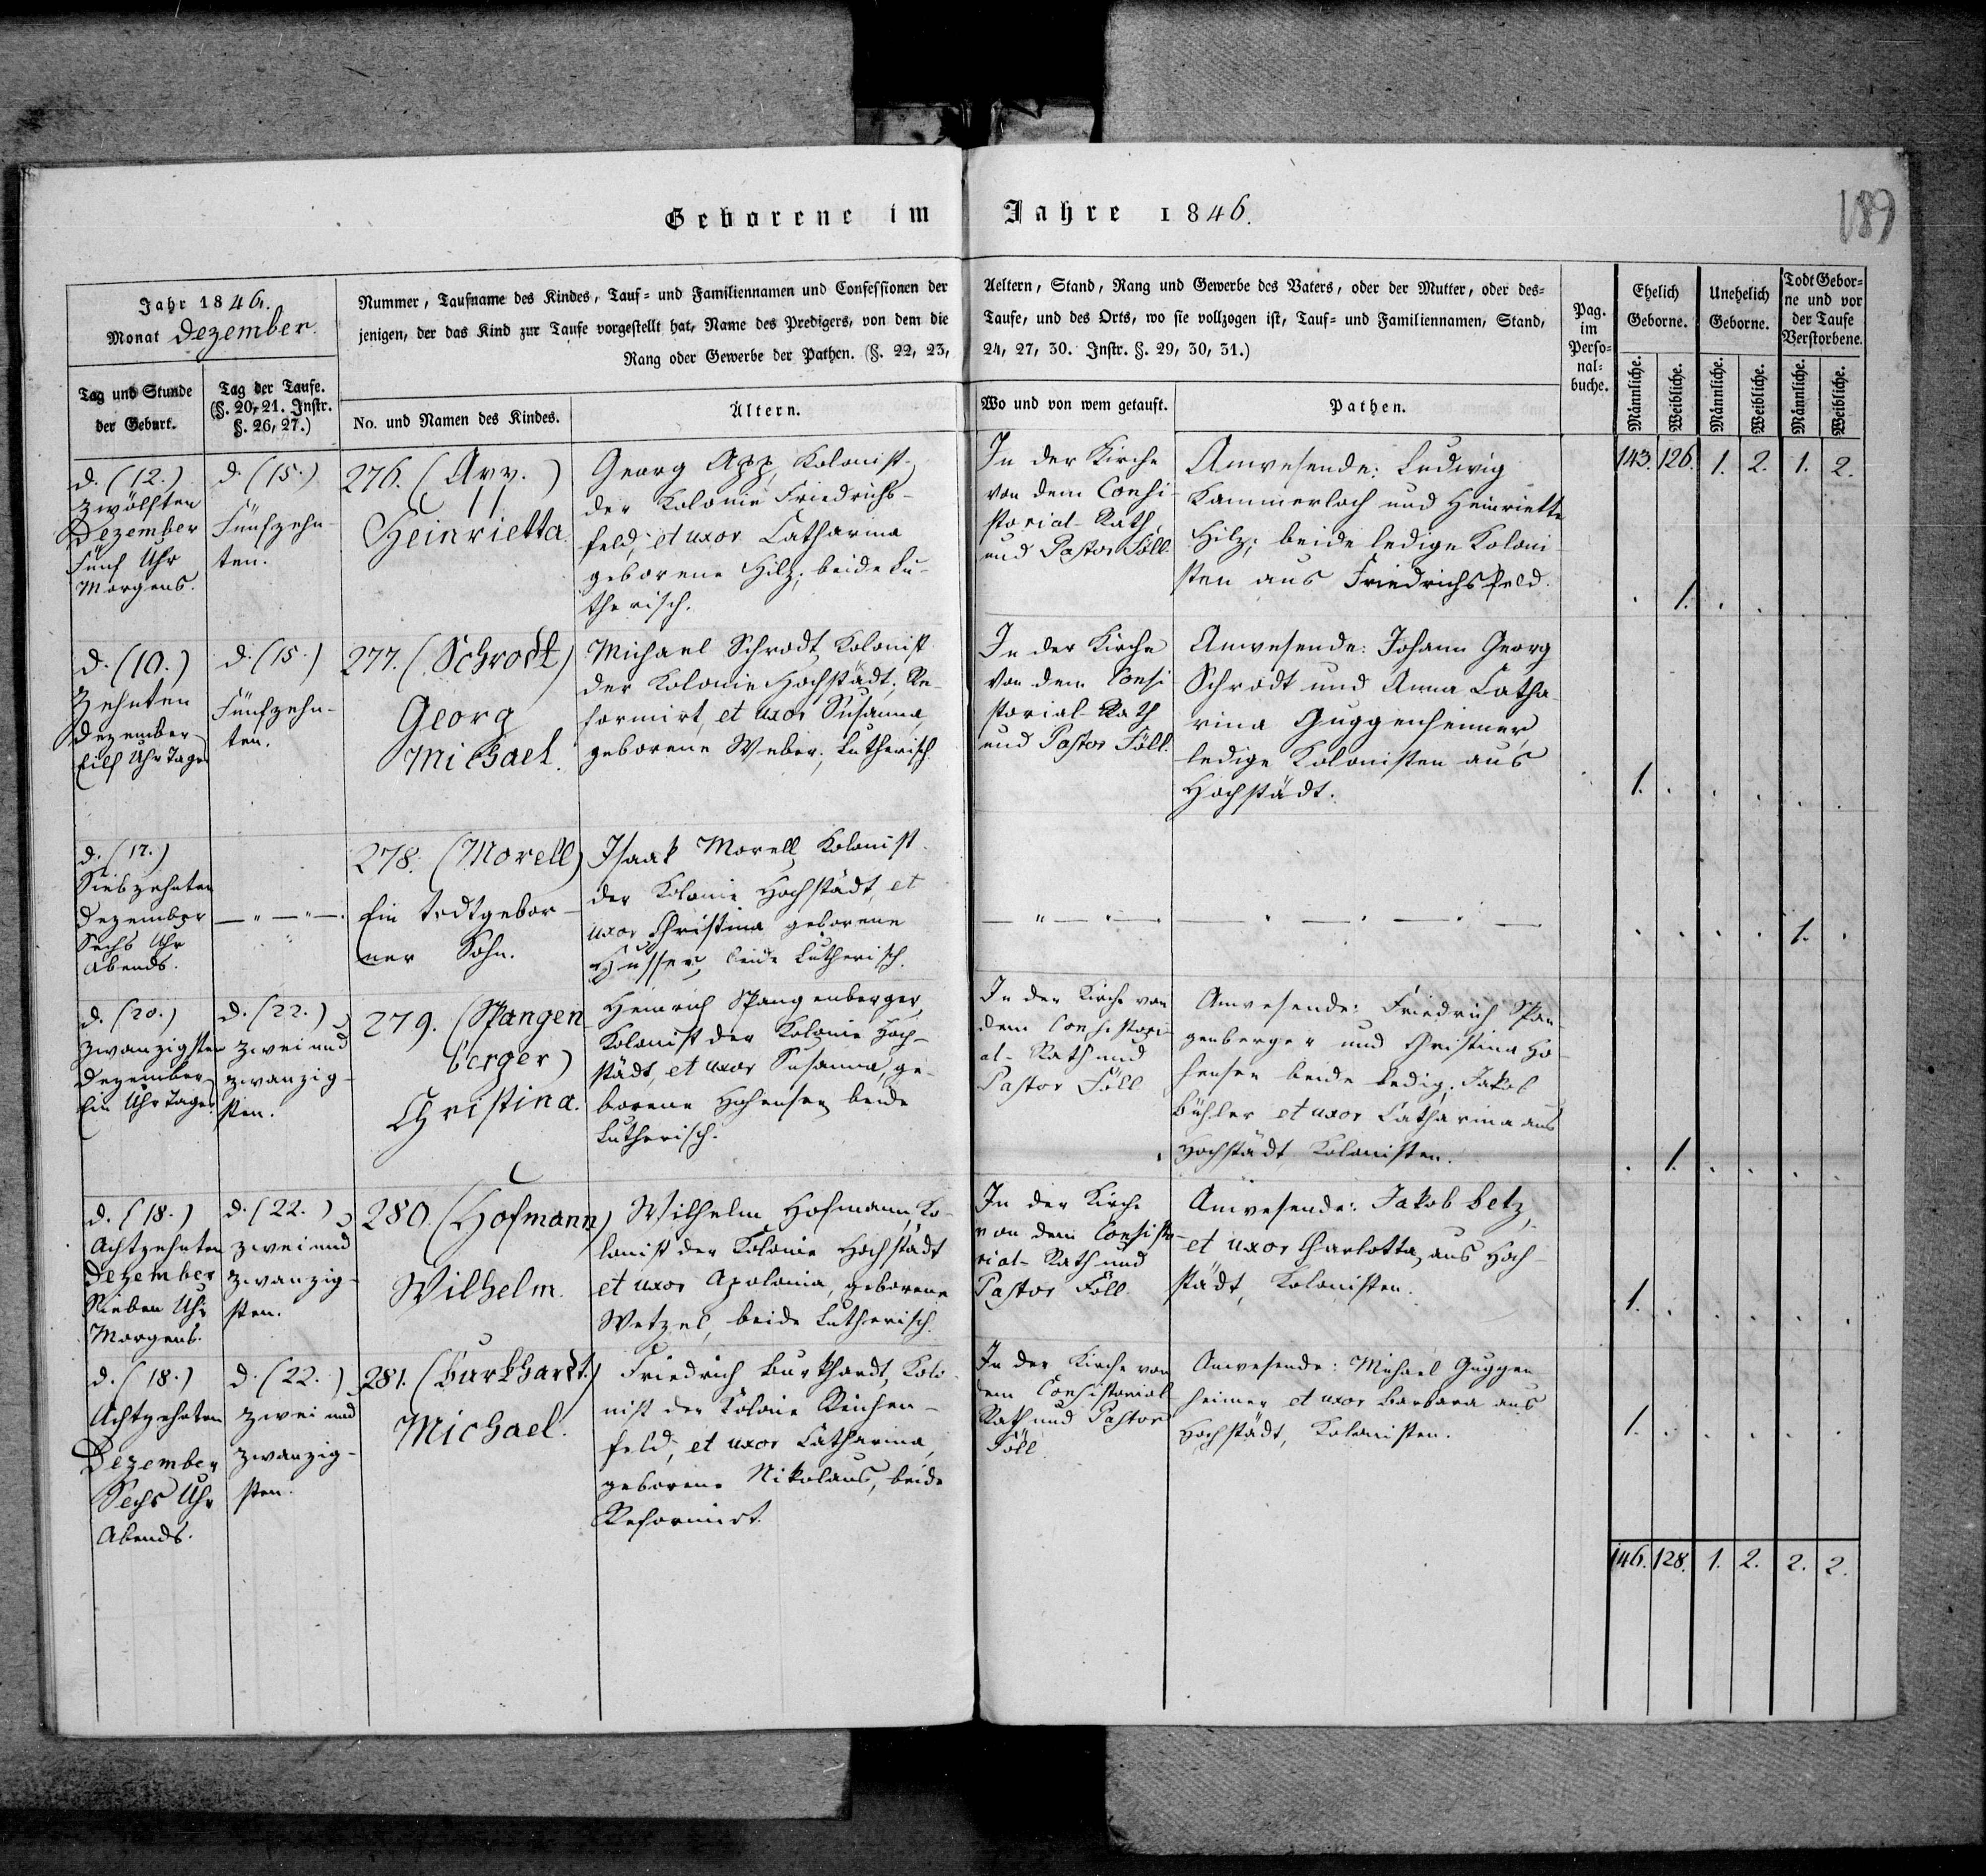 Geborene im Jahre 1846.
189
Jahr 1846.
Monat Dezember.
Nummer, Taufname des Kindes, Tauf- und Familiennamen und Confessionen der Aeltern, Stand, Rang und Gewerbe des Vaters, oder der Mutter, oder des-
jenigen, der das Kind zur Taufe vorgestellt hat, Name des Predigers, von dem die Taufe, und des Orts, wo sie vollzogen ist, Tauf- und Familiennamen, Stand,
Rang oder Gewerbe der Pathen. (§. 22, 23, 24, 27, 30. Instr. §. 29, 30, 31.)
Pag.
im
Perso-
nal-
buche.
Ehelich
Geborne.
Unehelich
Geborne.
Todt Gebor-
ne und vor
der Taufe
Verstorbene.
Tag und Stunde
der Geburt.
Tag der Taufe.
(§. 20, 21. Instr.
§. 26, 27.)
No. und Namen des Kindes.
Ältern.
Wo und von wem getauft.
Pathen.
Männliche.
Weibliche.
Männliche.
Weibliche.
Männliche.
Weibliche.
143. 126. 1. 2. 1. 2.
d. (12.)
zwölften
Dezember
Fünf Uhr
Morgens.
d. (15.)
Fünfzehn-
ten.
276. (App.)
Heinrietta.
Georg App, Kolonist
der Kolonie Friedrichs-
feld, et uxor Catharina
geborene Hilz; beide Lu-
therisch.
In der Kirche
von dem Consi-
storial-Rath
und Pastor Föll.
Anwesende: Ludwig
Kammerloch und Heinriette
Hilz; beide ledige Koloni-
sten aus Friedrichsfeld.
. 1. . .
d. (10.)
Zehnten
Dezember
Eilf Uhr Tages
d. (15.)
Fünfzehn-
ten.
277. (Schrodt)
Georg
Michael.
Michael Schrodt, Kolonist
der Kolonie Hochstädt; Re-
formirt, et uxor Susanna
geborene Weber; Lutherisch.
In der Kirche
von dem Consi-
storial-Rath
und Pastor Föll.
Anwesende: Johann Georg
Schrodt und Anna Catha-
rina Guggenheimer,
ledige Kolonisten aus
Hochstädt.
1. . . . . .
d. (17.)
Siebzehnten
Dezember
Sechs Uhr
Abends.
— " — " —.
278. (Morell)
Ein todtgebor-
ner Sohn.
Isaak Morell, Kolonist
der Kolonie Hochstädt, et
uxor Christina geborene
Husser, beide Lutherisch.
— " — " —.
. . . . 1. .
d. (20.)
zwanzigsten
Dezember
Ein Uhr Tages
d. (22.)
zwei und
zwanzig-
sten.
279. (Spangen
berger)
Christina.
Heinrich Spangenberger,
Kolonist der Kolonie Hoch-
städt, et uxor Susanna, ge-
borene Hohensee, beide
Lutherisch.
In der Kirche von
dem Consistori-
al-Rath und
Pastor Föll
Anwesende: Friedrich Span-
genberger und Christina Ho-
hensee beide ledig; Jakob
Bühler et uxor Catharina aus
Hochstädt, Kolonisten.
. 1. . . . .
d. (18.)
Achtzehnten
Dezember
Sieben Uhr
Morgens.
d. (22.)
zwei und
zwanzig-
sten.
280. (Hofmann)
Wilhelm.
Wilhelm Hofmann, Ko-
lonist der Kolonie Hochstädt
et uxor Apolonia, geborene
Wetzel, beide Lutherisch.
In der Kirche
von dem Consisto-
rial-Rath und
Pastor Föll
Anwesende: Jakob Betz,
et uxor Charlotta, aus Hoch-
städt, Kolonisten.
1. . . . . .
d. (18.)
Achtzehnten
Dezember
Sechs Uhr
Abends.
d. (22.)
zwei und
zwanzig-
sten.
281. (Burkhardt.)
Michael.
Friedrich Burkhardt, Kolo-
nist der Kolonie Reichen-
feld, et uxor Catharina,
geborene Nikolaus, beide
Reformirt.
In der Kirche von
dem Consistorial-
Rath und Pastor
Föll.
Anwesende: Michael Guggen
heimer et uxor Barbara aus
Hochstädt, Kolonisten.
1. . . . . .
146. 128. 1. 2. 2. 2.